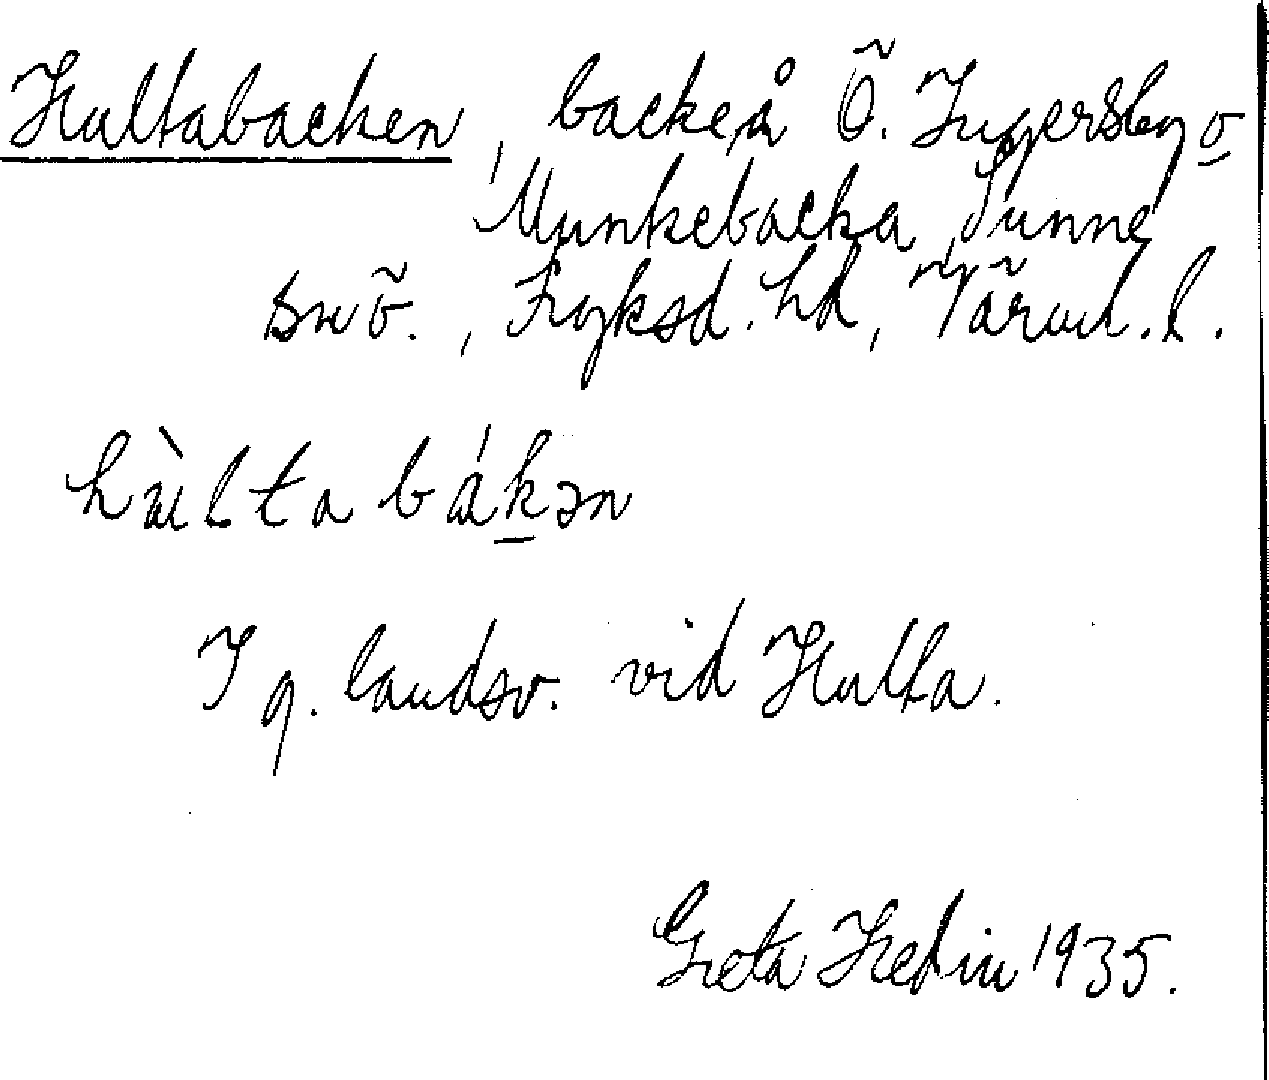 Hultabacken, backe å Ö. Ingersby o
Munkebacka, Sunne
sn ö., Fryksd. hd, Värml. l.
hùlta bákən
I g. landsv. vid Hulta.
Greta Hedin 1935.